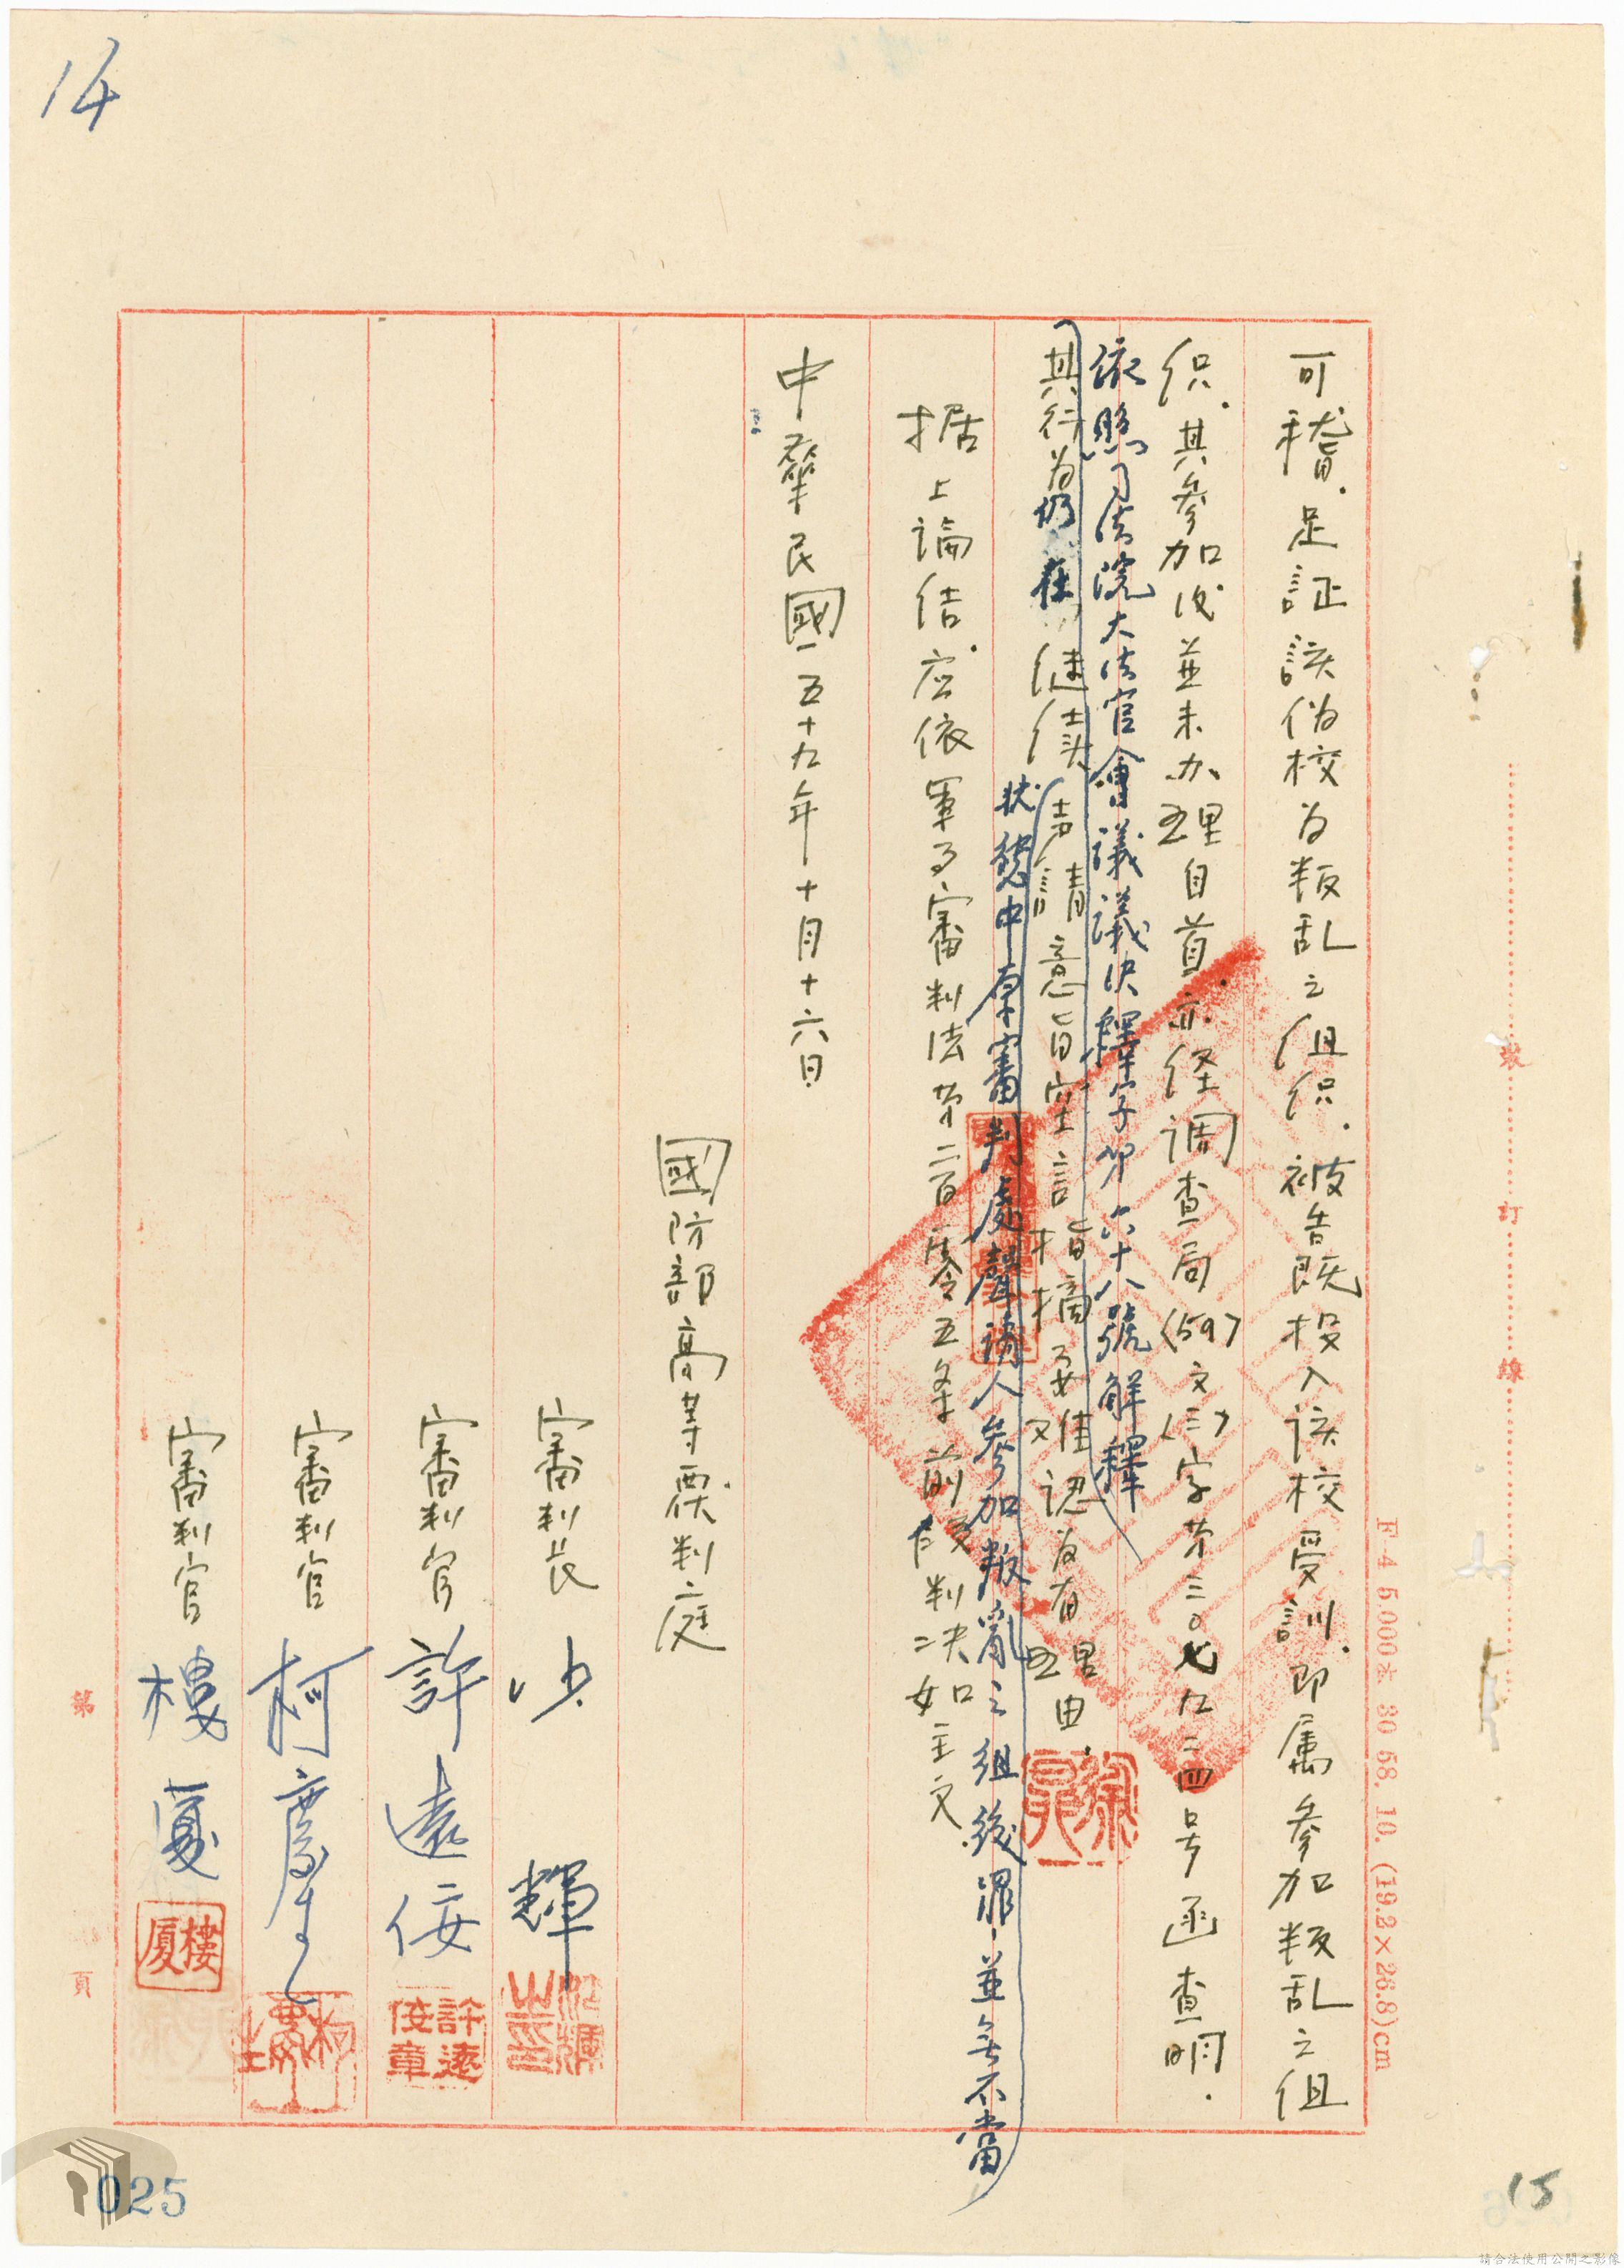 14
可稽.足証該偽校為叛乱之组织.被告既投入该校受訓.即属參加叛乱之组
织.其參加后並未办理自首.亦经调查局(59)文(三)字第三〇七九二四号函查明.
依照司法院大法官會議議決釋字第六十八號解釋
其行為仍在继续
狀態中原審判處聲請人參加叛亂之組織罪並無不當
声請意旨空言指摘要难認為有理由.
据上論结.应依軍事審判法第二百零五条前段判决如主文.
中華民國五十九年十月十六日
國防部高等覆判庭
審判長
輝
審判官 許遠佞
許遠佞章
審判官 柯慶生
審判官 樓廈
樓廈
裝 訂 線
F-4 5.000本 80 58. 10. (19.2×26.8)cm
第 頁
025
15
請合法使用公開之影像